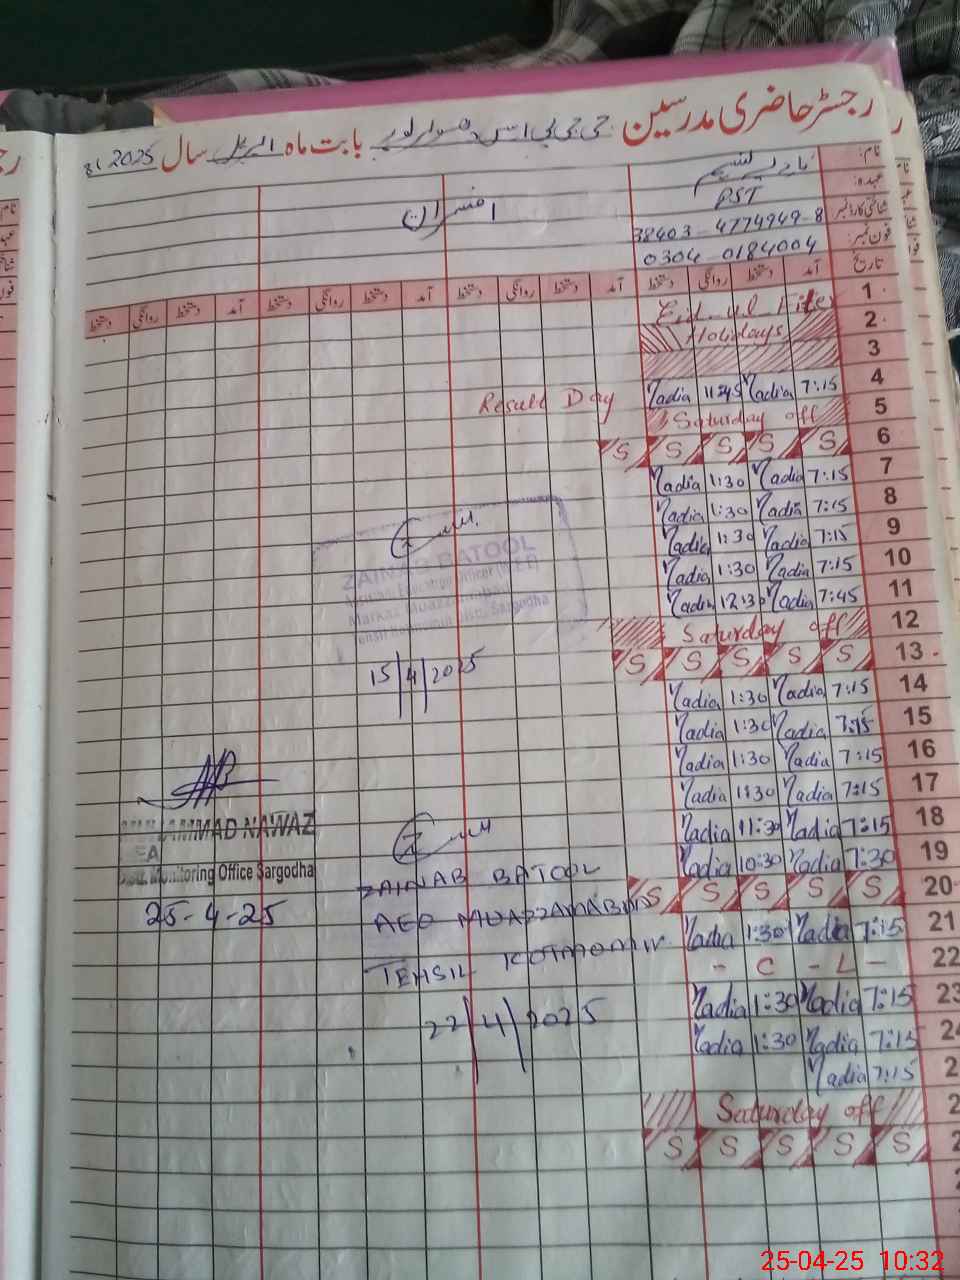 رجسٹر حاضری مدرسین جی جی پی ایس دھوار لور بابت ماہ اپریل سال 2025ء
نام:
عہدہ: PST
شناختی کارڈ نمبر 38403-4774949-8
فون نمبر: 0304-0184004
افسران
تاریخ آمد دستخط روانگی دستخط آمد دستخط روانگی دستخط آمد دستخط روانگی دستخط آمد دستخط روانگی دستخط
1 Eid-ul-Fiter
2 Holidays
3
4 7:15 Nadia 11:45 Nadia Result Day
5 Saturday off
6 S S S S S
7 7:15 Nadia 1:30 Nadia
8 7:15 Nadia 1:30 Nadia
9 7:15 Nadia 1:30 Nadia
10 7:15 Nadia 1:30 Nadia
11 7:45 Nadia 12:30 Nadia
12 Saturday off
13 S S S S S
14 7:15 Nadia 1:30 Nadia
15 7:15 Nadia 1:30 Nadia
16 7:15 Nadia 1:30 Nadia
17 7:15 Nadia 1:30 Nadia
18 7:15 Nadia 11:30 Nadia
19 7:30 Nadia 10:30 Nadia
20 S S S S S
21 7:15 Nadia 1:30 Nadia
22 - C - L -
23 7:15 Nadia 1:30 Nadia
24 7:15 Nadia 1:30 Nadia
2 7:15 Nadia
2 Saturday off
2 S S S S S
ZAINAB BATOOL
Markaz Muazzamabad
Sargodha
15/4/2025
MUHAMMAD NAWAZ
EA
Monitoring Office Sargodha
25-4-25
ZAINAB BATOOL
AEO MUAZZAMABAD
TEHSIL KOTMOMIN
22/4/2025
25-04-25 10:32